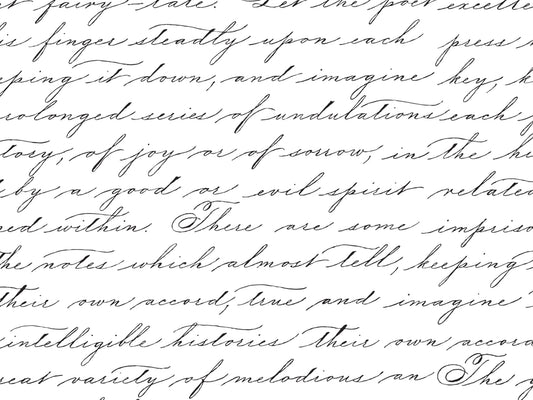 t fairy-tale. Let the poet excelle
is finger steadly upon each press
eping it down, and imagine key, k
rolonged series of undulations each
tory, of joy or of sorrow, in the hi
by a good or evil spirit related
ed within. There are some impriso
the notes which almost tell, keeping
their own accord, true and imagine
intelligible histories their own accord
reat variety of melodious an The y